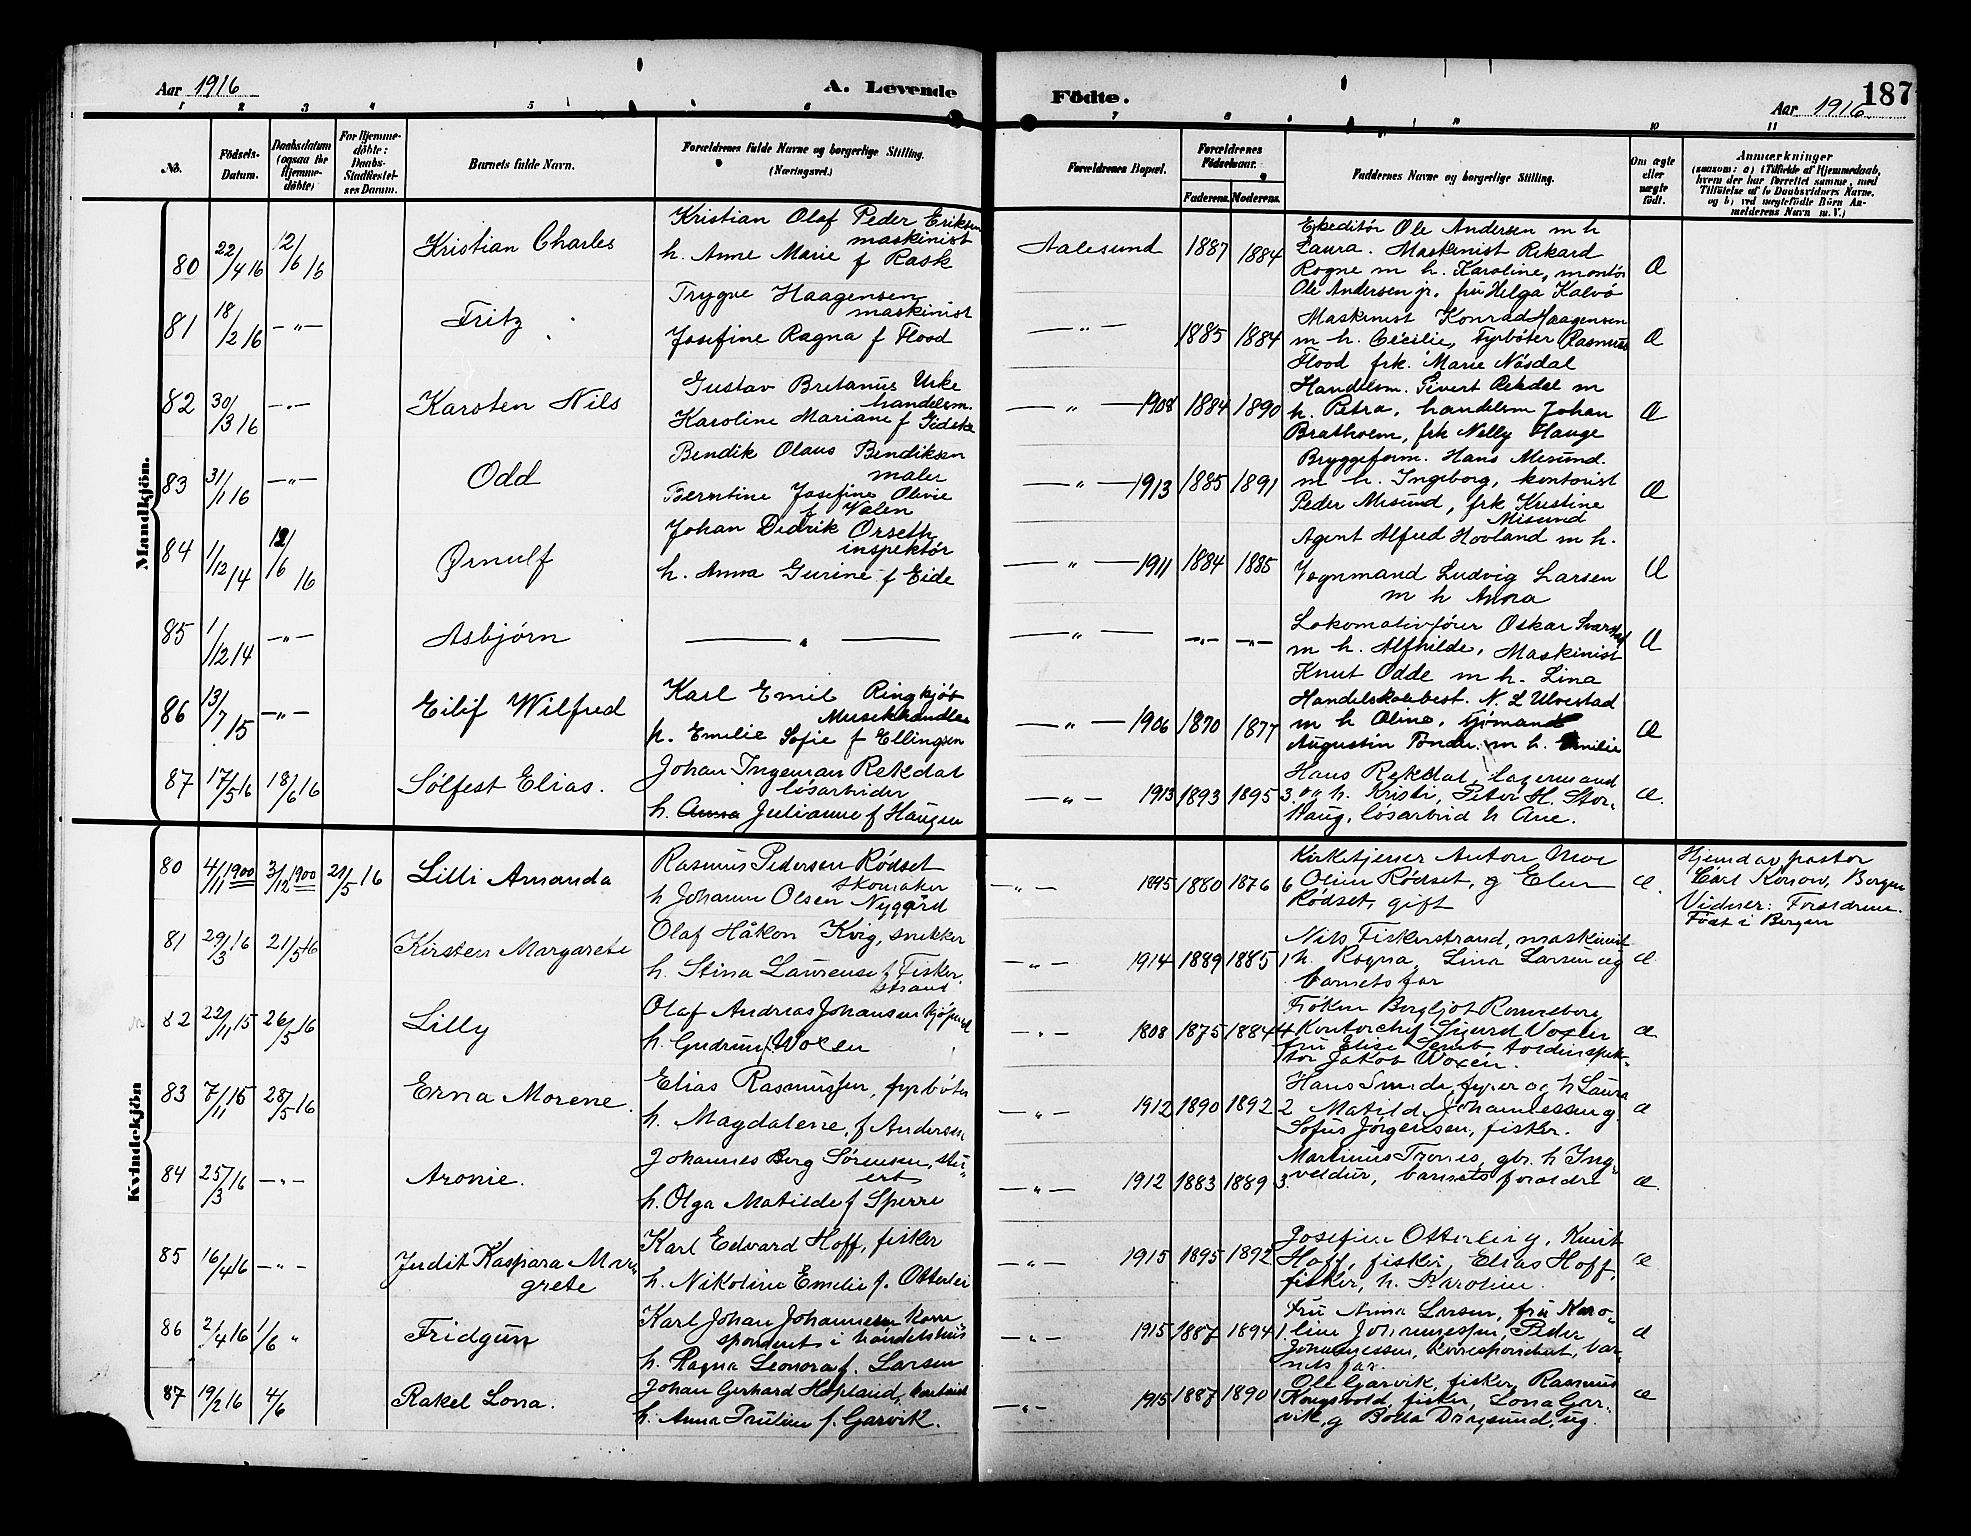 Aar 1916
A. Levende
Födte.
187
Aar 1916
1 2 3 4 5 6 7 8 9 10 11
No.
Födsels-
Datum.
Daabsdatum
(ogsaa for
Hjemme-
döbte)
For Hjemme-
döbte:
Daabs-
Stadfæstel-
ses Datum.
Barnets fulde Navn.
Forældrenes fulde Navne og borgerlige Stilling.
(Næringsvei.)
Forældrenes Bopæl.
Forældrenes
Födselsaar.
Faderens. Moderens.
Faddernes Navne og borgerlige Stilling.
Om ægte
eller
uægte
födt.
Anmærkninger
(saasom: a) i Tilfælde af Hjemmedaab,
hvem der har forrettet samme, med
Tilföielse af to Daabsvidners Navne.
og b) ved uegtefödte Börn An-
melderens Navn m. V.)
Mandkjön.
80 22/4 16 12/6 16 Kristian Charles
Kristian Olaf Peder Eriksen
maskinist
h. Anne Marie f Rask
Aalesund 1887 1884
Ekpeditør Ole Andersen m h
Laura. Maskinist Rikard
Rogne m h. Karoline, montør
Ole Andersen jr. fru Helga Kalvø
Æ
81 18/2 16 — „ — Fritz
Trygve Haagensen
maskinist
Josefine Ragna f Flood
— „ — 1885 1884
Maskinist Konrad Haagensen
m h. Cecilie, Fyrbøter Rasmus
Flood frk. Marie Nösdal
Æ
82 30/3 16 — „ — Karsten Nils
Gustav Britanus Urke
handelsm.
Karoline Mariane f Giske
— „ — 1908 1884 1890
Handelsm. Sivert Rekdal m
h. Petra, handelsm Johan
Bratholm, frk Nelly Hauge
Æ
83 31/1 16 — „ — Odd
Bendik Olaus Bendiksen
maler
Berntine Josefine Olivie
f Valen
— „ — 1913 1885 1891
Bryggeform. Hans Misund.
m h. Ingeborg, kontorist
Peder Misund, frk Kristine
Misund
Æ
84 1/12 14 12/6 16 Ørnulf
Johan Didrik Orseth
inspektör
h. Anna Gurine f Eide
— „ — 1911 1884 1885
Agent Alfred Hovland m h.
Vognmand Ludvig Larsen
m h Anna
Æ
85 1/12 14 — „ — Asbjörn
— „ —
— „ — — „ — — „ —
Lokomotivfører Oskar Svarstad
m h. Alfhilde, Maskinist
Knut Odde m h. Lina
Æ
86 13/7 15 — „ — Eilif Wilfred
Karl Emil Ringkjöb
Musikhandler
h. Emelie Sofie f Ellingsen
— „ — 1906 1870 1877
N. L Ulvestad
m h Oline,
Augustin m h. Emilie
Æ
87 17/5 16 18/6 16 Sölfest Elias.
Johan Ingemar Rekdal
lösarbeider
h. Anna Julianne f Haugen
— „ — 1913 1893 1895 3
Hans Rekdal, lagermand
og h. Kristi, Peter H. Stor-
haug, lösarbeid h Ane.
Æ.
Kvindekjön
80 4/11 1900 3/12 1900 21/5 16 Lilli Amanda
Rasmus Pedersen Rödset
skomaker
h Johanne Olsen Nygård
— „ — 1895 1880 1876 6
Kirketjener Anton Moe
Oline Rödset, g Elen
Rödset, gift
Æ.
Hjemd av pastor
Carl Konow, Bergen
Vidner: Foreldrene.
Födt i Bergen
81 29/3 16 21/5 16 Kirsten Margarete
Olaf Håkon Kvig, snekker
h. Stina Laurense f Fisker-
strand
— „ — 1914 1889 1885 1
Nils Fiskerstrand, maskinist
h. Ragna, Lina Larsen ug
barnets far
Æ
82 22/11 15 26/5 16 Lilly
Olaf Andreas Johansen kjöpmd
h. Gudrun f Woxen
— „ — 1808 1875 1884 4
Fröken Bergljot Ronneberg
Kontorchef Sigurd Voxen
fru Elise toldinspek-
tör Jakob Woxen.
Æ
83 7/11 15 28/5 16 Erna Morene.
Elias Rasmussen, fyrböter
h. Magdalene, f Andersen
— „ — 1912 1890 1892 2
Hans Sunde, fyrer og h Laura
Matild Johannessen g
Sofus Jörgensen, fisker.
Æ
84 25/3 16 — „ — Aronie.
Johannes Berg Sörensen, stu-
ert
h. Olga Matilde f Sperre
— „ — 1912 1883 1889 3
Martinus Trones, gbr. h Ing-
veldur, barnets foreldre
Æ.
85 16/4 16 — „ — Judit Kaspara Mar-
grete
Karl Edvard Hoff, fisker
h. Nikoline Emelie f. Otterlei
— „ — 1915 1895 1892
Josefine Otterlei g, Knut
Hoff, fisker, Elias Hoff,
fisker, h. Karoline.
Æ
86 2/4 16 1/6 „ Fridgün
Karl Johan Johannesen Korre-
spondent i handelshus
h. Ragna Leonora f. Larsen
— „ — 1915 1887 1894 1
Fru Anna Larsen, fru Karo-
line Johannessen, Peder
Johannessen, korrespondent, bar-
nets far.
Æ
87 19/2 16 4/6 Rakel Lona.
Johan Gerhard Hopland,
h. Anna Pauline f. Garvik.
— „ — 1915 1887 1890 1
Ole Garvik, fisker, Rasmus
Kongsvold, fisker, Lona Gar-
vik, g Bolla Dragsund, ug.
Æ